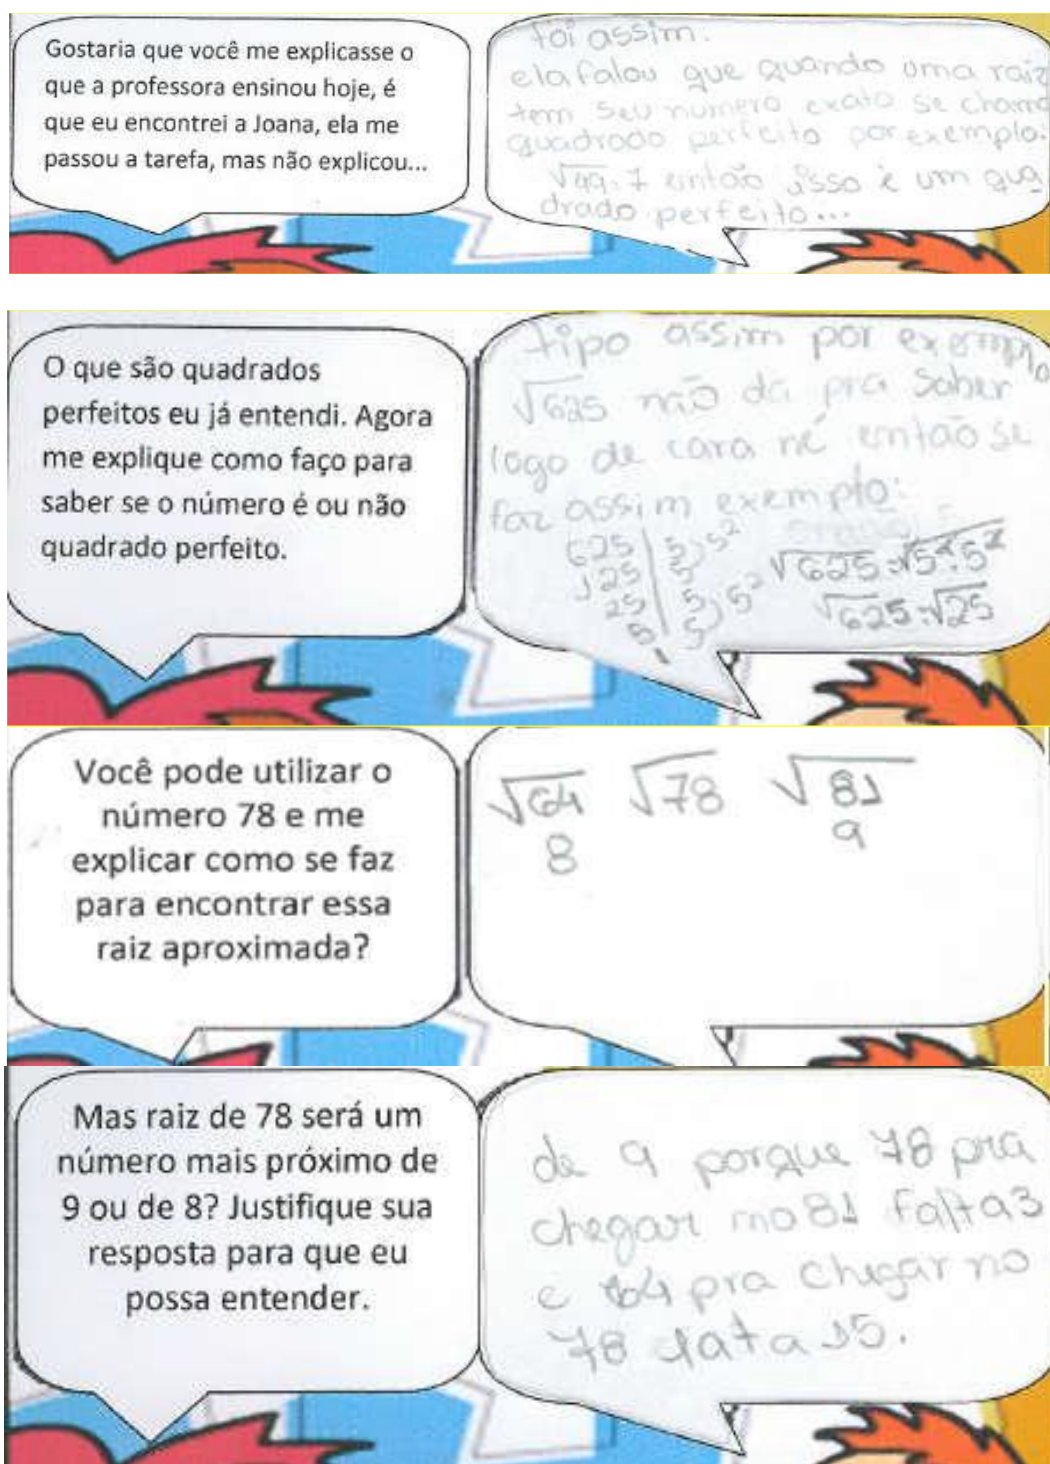 Gostaria que você me explicasse o
que a professora ensinou hoje, é
que eu encontrei a Joana, ela me
passou a tarefa, mas não explicou...
foi assim.
ela falou que quando uma raiz
tem seu numero exato se chama
quadrado perfeito por exemplo:
√49.7 então isso é um qua
drado perfeito...
O que são quadrados
perfeitos eu já entendi. Agora
me explique como faço para
saber se o número é ou não
quadrado perfeito.
tipo assim por exemplo
√625 não dá pra saber
logo de cara né então se
faz assim exemplo:
625 | 5 5²
125 | 5
25 | 5 5²
5 | 5
√625 = √5².5²
√625 = √25
Você pode utilizar o
número 78 e me
explicar como se faz
para encontrar essa
raiz aproximada?
√64 √78 √81
8 9
Mas raiz de 78 será um
número mais próximo de
9 ou de 8? Justifique sua
resposta para que eu
possa entender.
de 9 porque 78 pra
chegar no 81 falta 3
e 64 pra chegar no
78 fata 15.